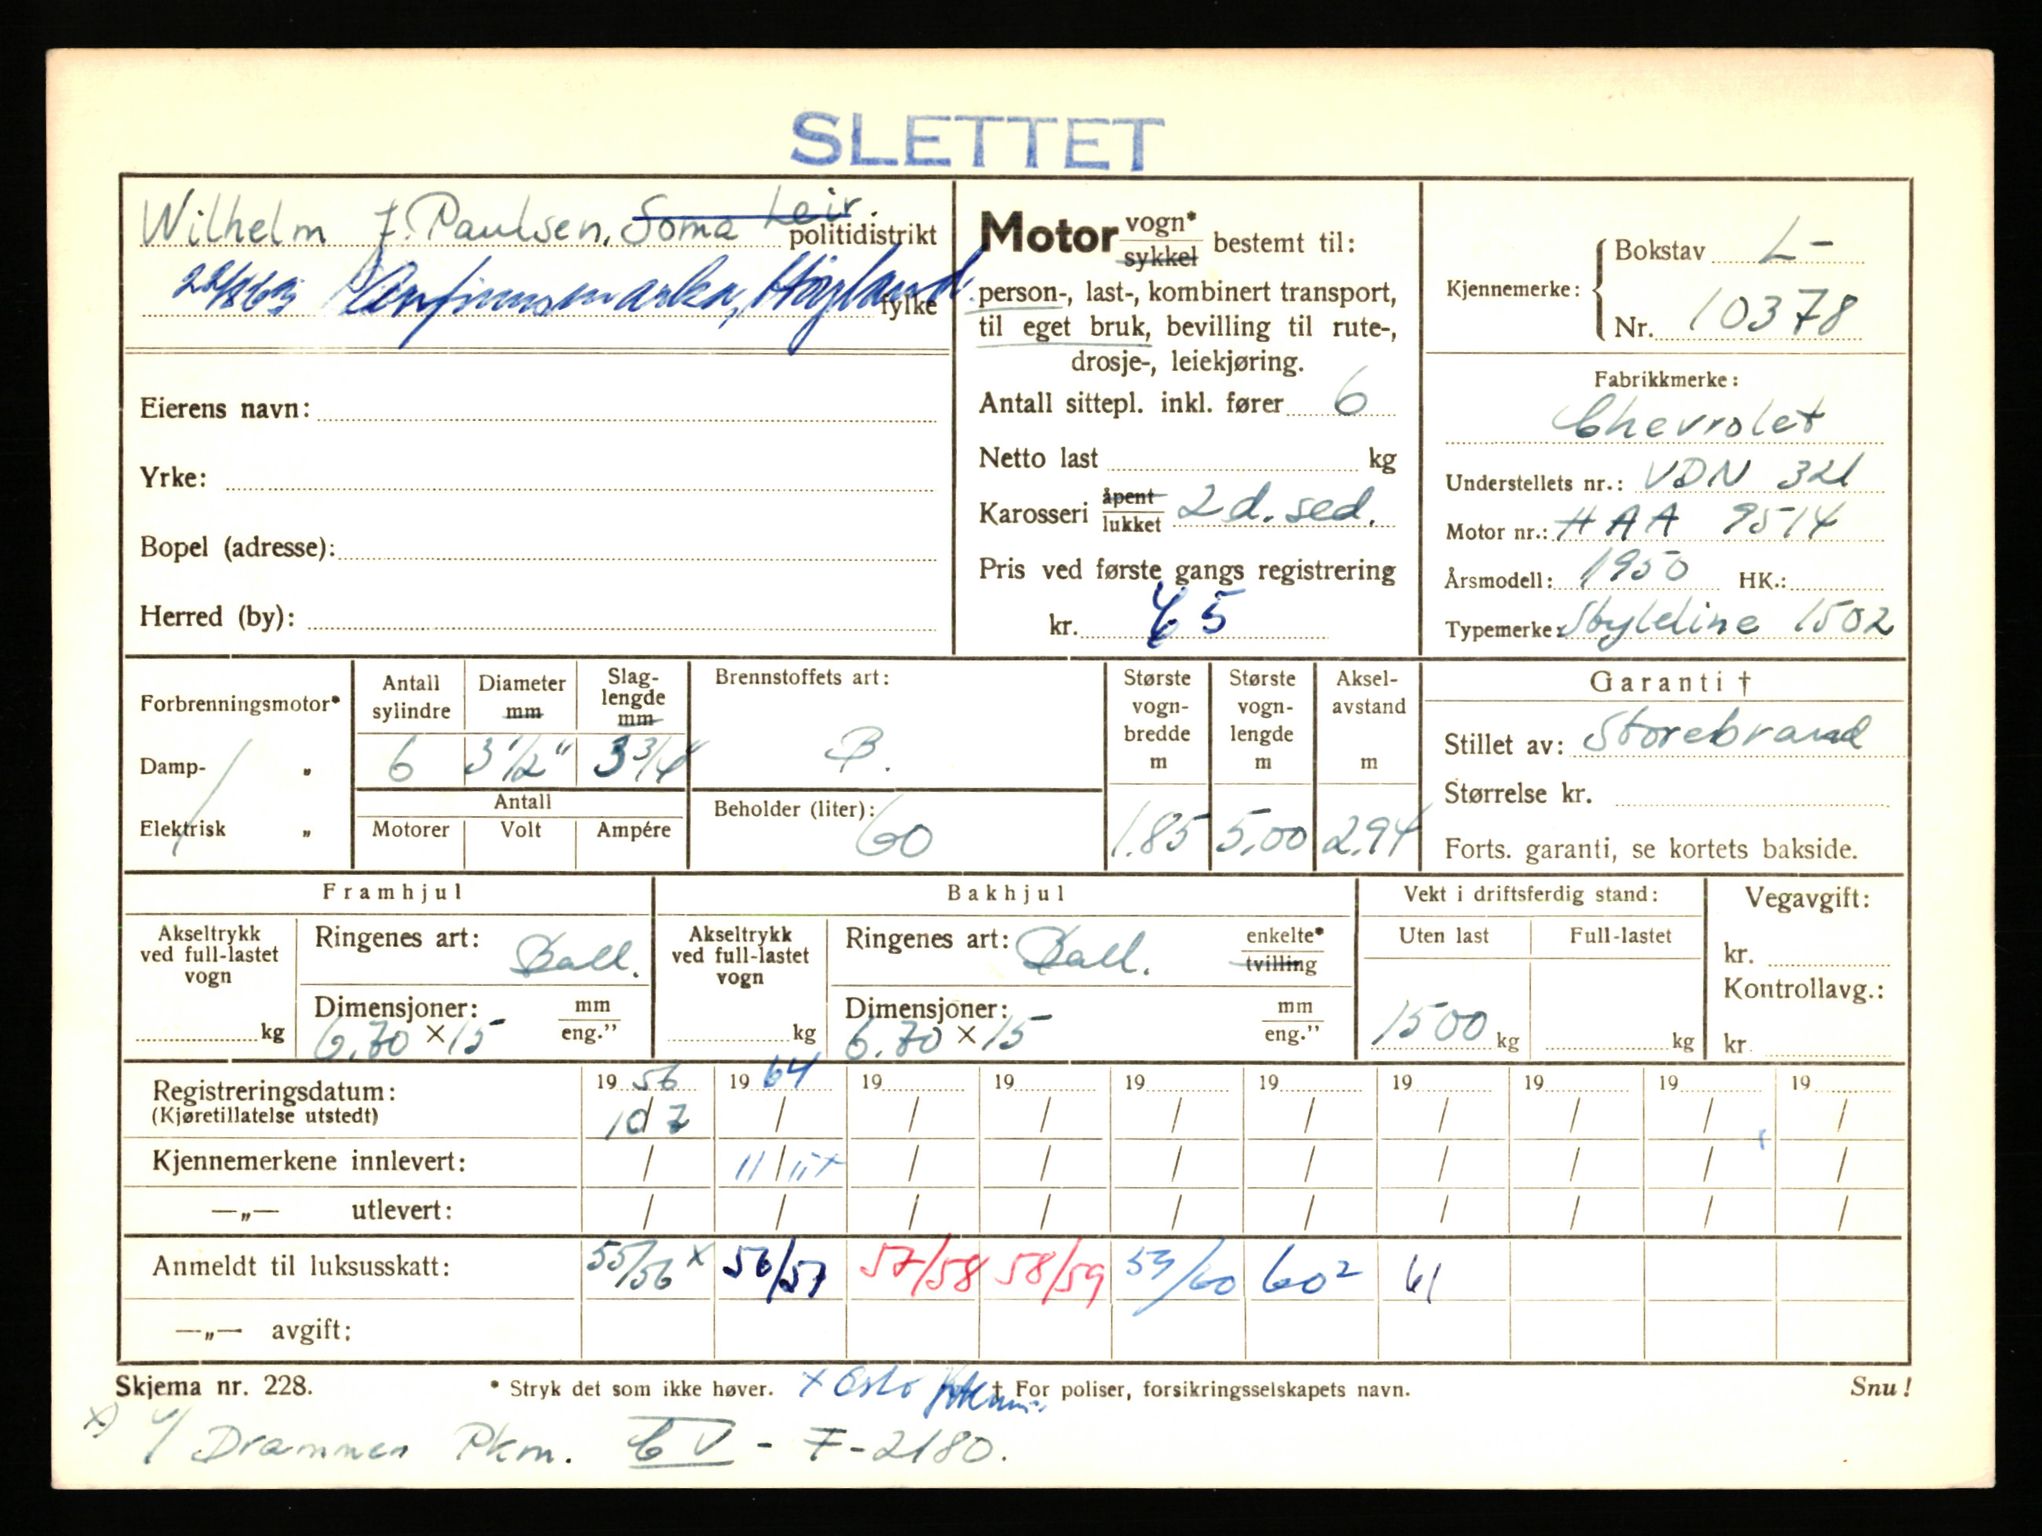 SLETTET
Wilhelm J. Paulsen, Soma Leir. politidistrikt
Høyland. fylke
Eierens navn:
Yrke:
Bopel (adresse):
Herred (by):
Motor vogn* sykkel bestemt til:
person-, last-, kombinert transport,
til eget bruk, bevilling til rute-,
drosje-, leiekjøring.
Antall sittepl. inkl. fører 6
Netto last kg
Karosseri åpent lukket 2 d. sed.
Pris ved første gangs registrering
kr. 65
Kjennemerke: Bokstav L-
Nr. 10378
Fabrikkmerke:
Chevrolet
Understellets nr.: VDN 321
Motor nr.: HAA 9514
Årsmodell: 1950 HK.:
Typemerke: Styleline 1502
Forbrenningsmotor*
Damp- „
Elektrisk „
Antall sylindre 6
Diameter mm 3 1/2"
Slag-lengde mm 3 3/4
Antall
Motorer Volt Ampére
Brennstoffets art:
B.
Beholder (liter): 60
Største vogn-bredde m 1.85
Største vogn-lengde m 5,00
Aksel-avstand m 2.94
Garanti †
Stillet av: Storebrand
Størrelse kr.
Forts. garanti, se kortets bakside.
Framhjul
Akseltrykk ved full-lastet vogn kg
Ringenes art: Ball.
Dimensjoner: mm eng.”
6.70 × 15
Bakhjul
Akseltrykk ved full-lastet vogn kg
Ringenes art: Ball. enkelte* tvilling
Dimensjoner: mm eng.”
6.70 × 15
Vekt i driftsferdig stand:
Uten last Full-lastet
1500 kg kg
Vegavgift:
kr.
Kontrollavg.:
kr.
Registreringsdatum: 19 56 19 64 19 19 19 19 19 19 19 19
(Kjøretillatelse utstedt) 10/7 / / / / / / / / /
Kjennemerkene innlevert: / 11/11 x / / / / / / / /
—„— utlevert: / / / / / / / / / /
Anmeldt til luksusskatt: 55/56 x 56/57 57/58 58/59 59/60 60² 61
—„— avgift:
Skjema nr. 228. * Stryk det som ikke høver. x Oslo † For poliser, forsikringsselskapets navn. Snu!
x) 4/ Drammen Pkm. CV - F-2180.